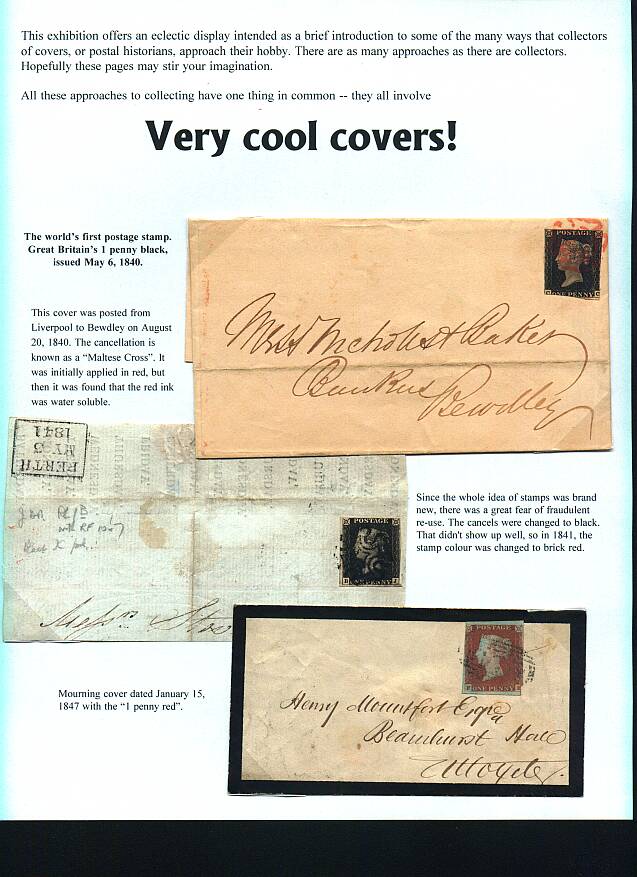 This exhibition offers an eclectic display intended as a brief introduction to some of the many ways that collectors
of covers, or postal historians, approach their hobby. There are as many approaches as there are collectors.
Hopefully these pages may stir your imagination.
All these approaches to collecting have one thing in common -- they all involve
Very cool covers!
The world's first postage stamp.
Great Britain's 1 penny black,
issued May 6, 1840.
This cover was posted from
Liverpool to Bewdley on August
20, 1840. The cancellation is
known as a "Maltese Cross". It
was initially applied in red, but
then it was found that the red ink
was water soluble.
POSTAGE
ONE PENNY
Mess Nicholls & Baker
Bankers
Bewdley
PERTH
MY 5
1841
POSTAGE
ONE PENNY
Messrs
Since the whole idea of stamps was brand
new, there was a great fear of fraudulent
re-use. The cancels were changed to black.
That didn't show up well, so in 1841, the
stamp colour was changed to brick red.
POSTAGE
ONE PENNY
Henry Mountfort Esqre
Beamhurst Hall
Uttoxeter
Mourning cover dated January 15,
1847 with the "1 penny red".